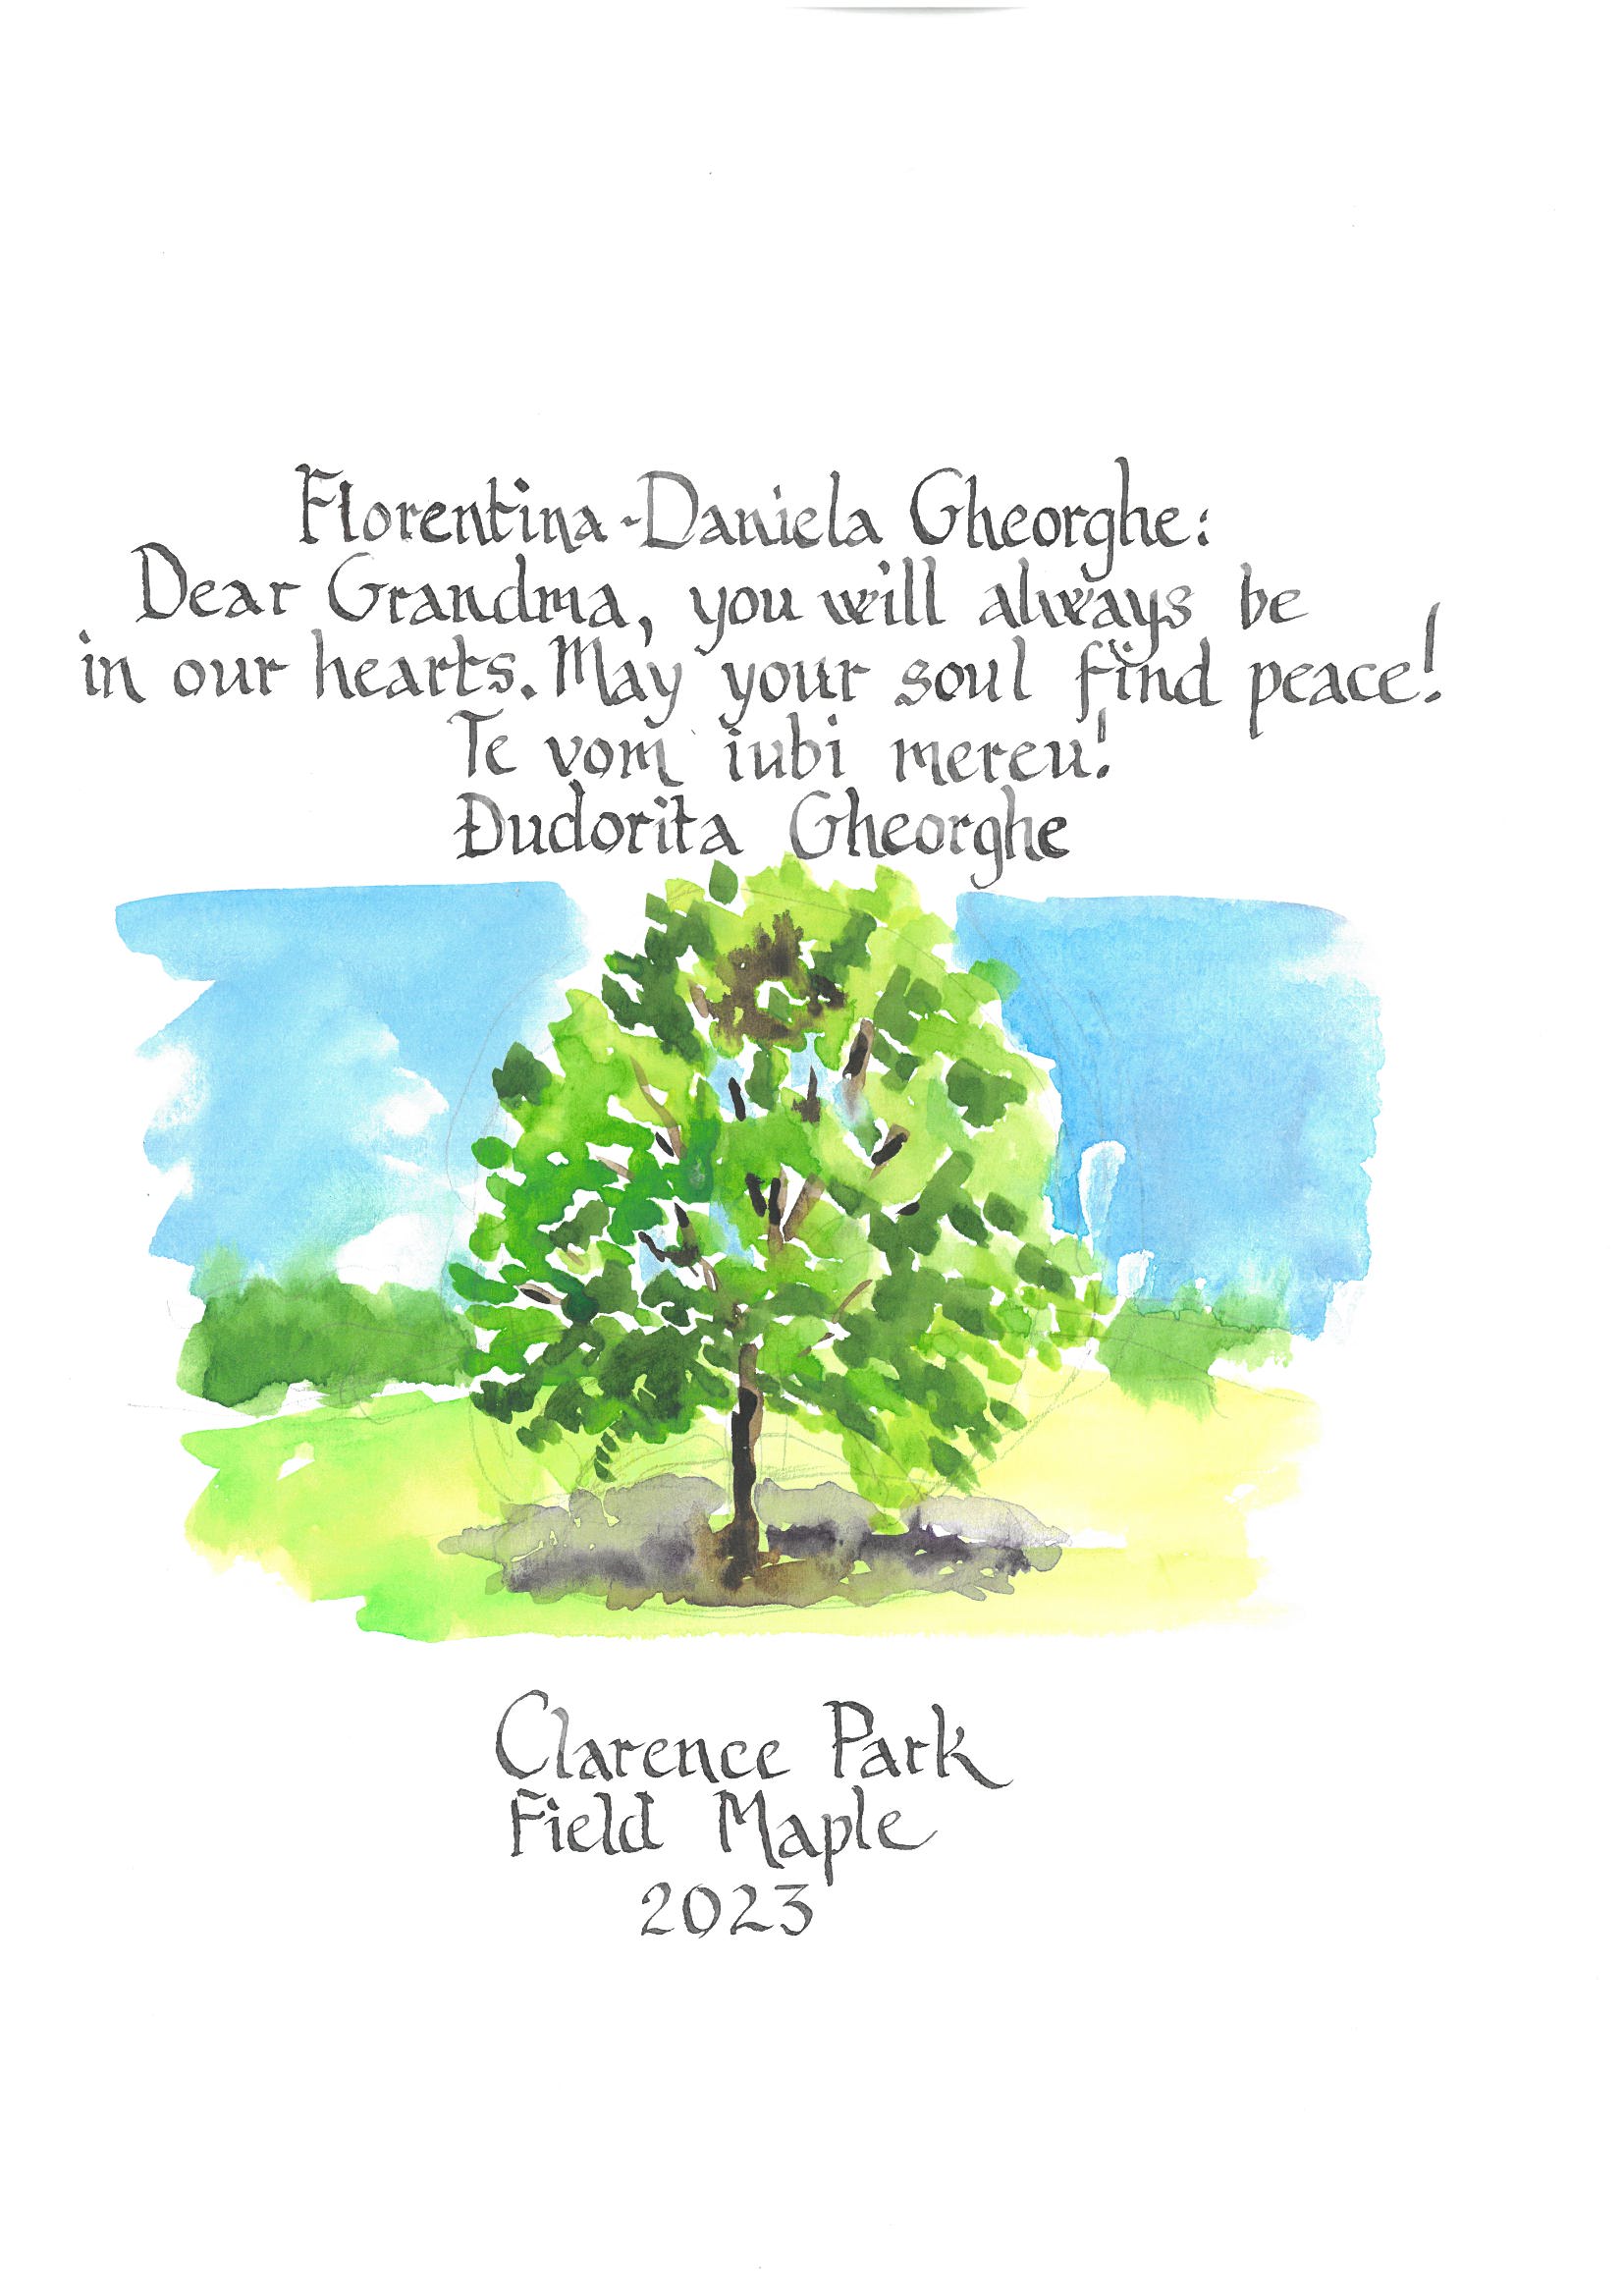 Florentina-Daniela Gheorghe:
Dear Grandma, you will always be
in our hearts. May your soul find peace!
Te vom iubi mereu!
Dudorita Gheorghe
Clarence Park
Field Maple
2023